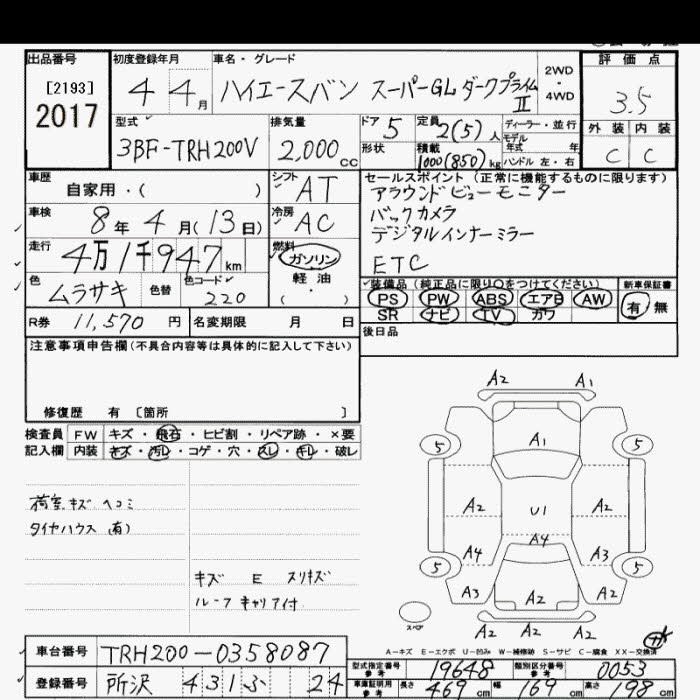 出品番号 初度登録年月 車名・グレード 評価点
[2193] 4 4月 ハイエースバン スーパーGL ダークプライムⅡ 2WD・4WD 3.5
2017
型式 排気量 ドア 5 定員 2(5)人 ディーラー・並行 外装 内装
3BF-TRH200V 2,000cc 形状 積載 1000(850)kg モデル年式 年式 ハンドル 左・右 C C
車歴 自家用・( ) シフト AT セールスポイント(正常に機能するものに限ります)
アラウンドビューモニター
車検 8年4月(13日) 冷房 AC バックカメラ
デジタルインナーミラー
走行 4万1千947km 燃料 ガソリン 軽油 ( ・ ) ETC
色 ムラサキ 色替 色コード 220 装備品(純正品に限り○をつけてください) 新車保証書
PS PW ABS エアB AW 有 無
SR ナビ TV カワ
R券 11,570円 名変期限 月 日 後日品
注意事項申告欄(不具合内容等は具体的に記入して下さい)
修復歴 有 [箇所 ]
検査員 FW キズ・飛石・ヒビ割・リペア跡・×要
記入欄 内装 キズ・汚レ・コゲ・穴・スレ・キレ・破レ
荷室キズ ヘコミ
タイヤハウス(有)
キズ E スリキズ
ルーフキャリア付
A2 A1
5 A1 5
A2 U1 A2
A4 A4 A3
5 5
A3 A2 A2
A2 A2
スペア
A-キズ E-エクボ U-凹み W-補修跡 S-サビ C-腐食 XX-交換済
車台番号 TRH200-0358087
型式指定番号 参考 19648 類別区分番号 参考 0053
登録番号 所沢 431 ふ 24 車庫証明用 参考 長さ 469cm 幅 169cm 高さ 198cm